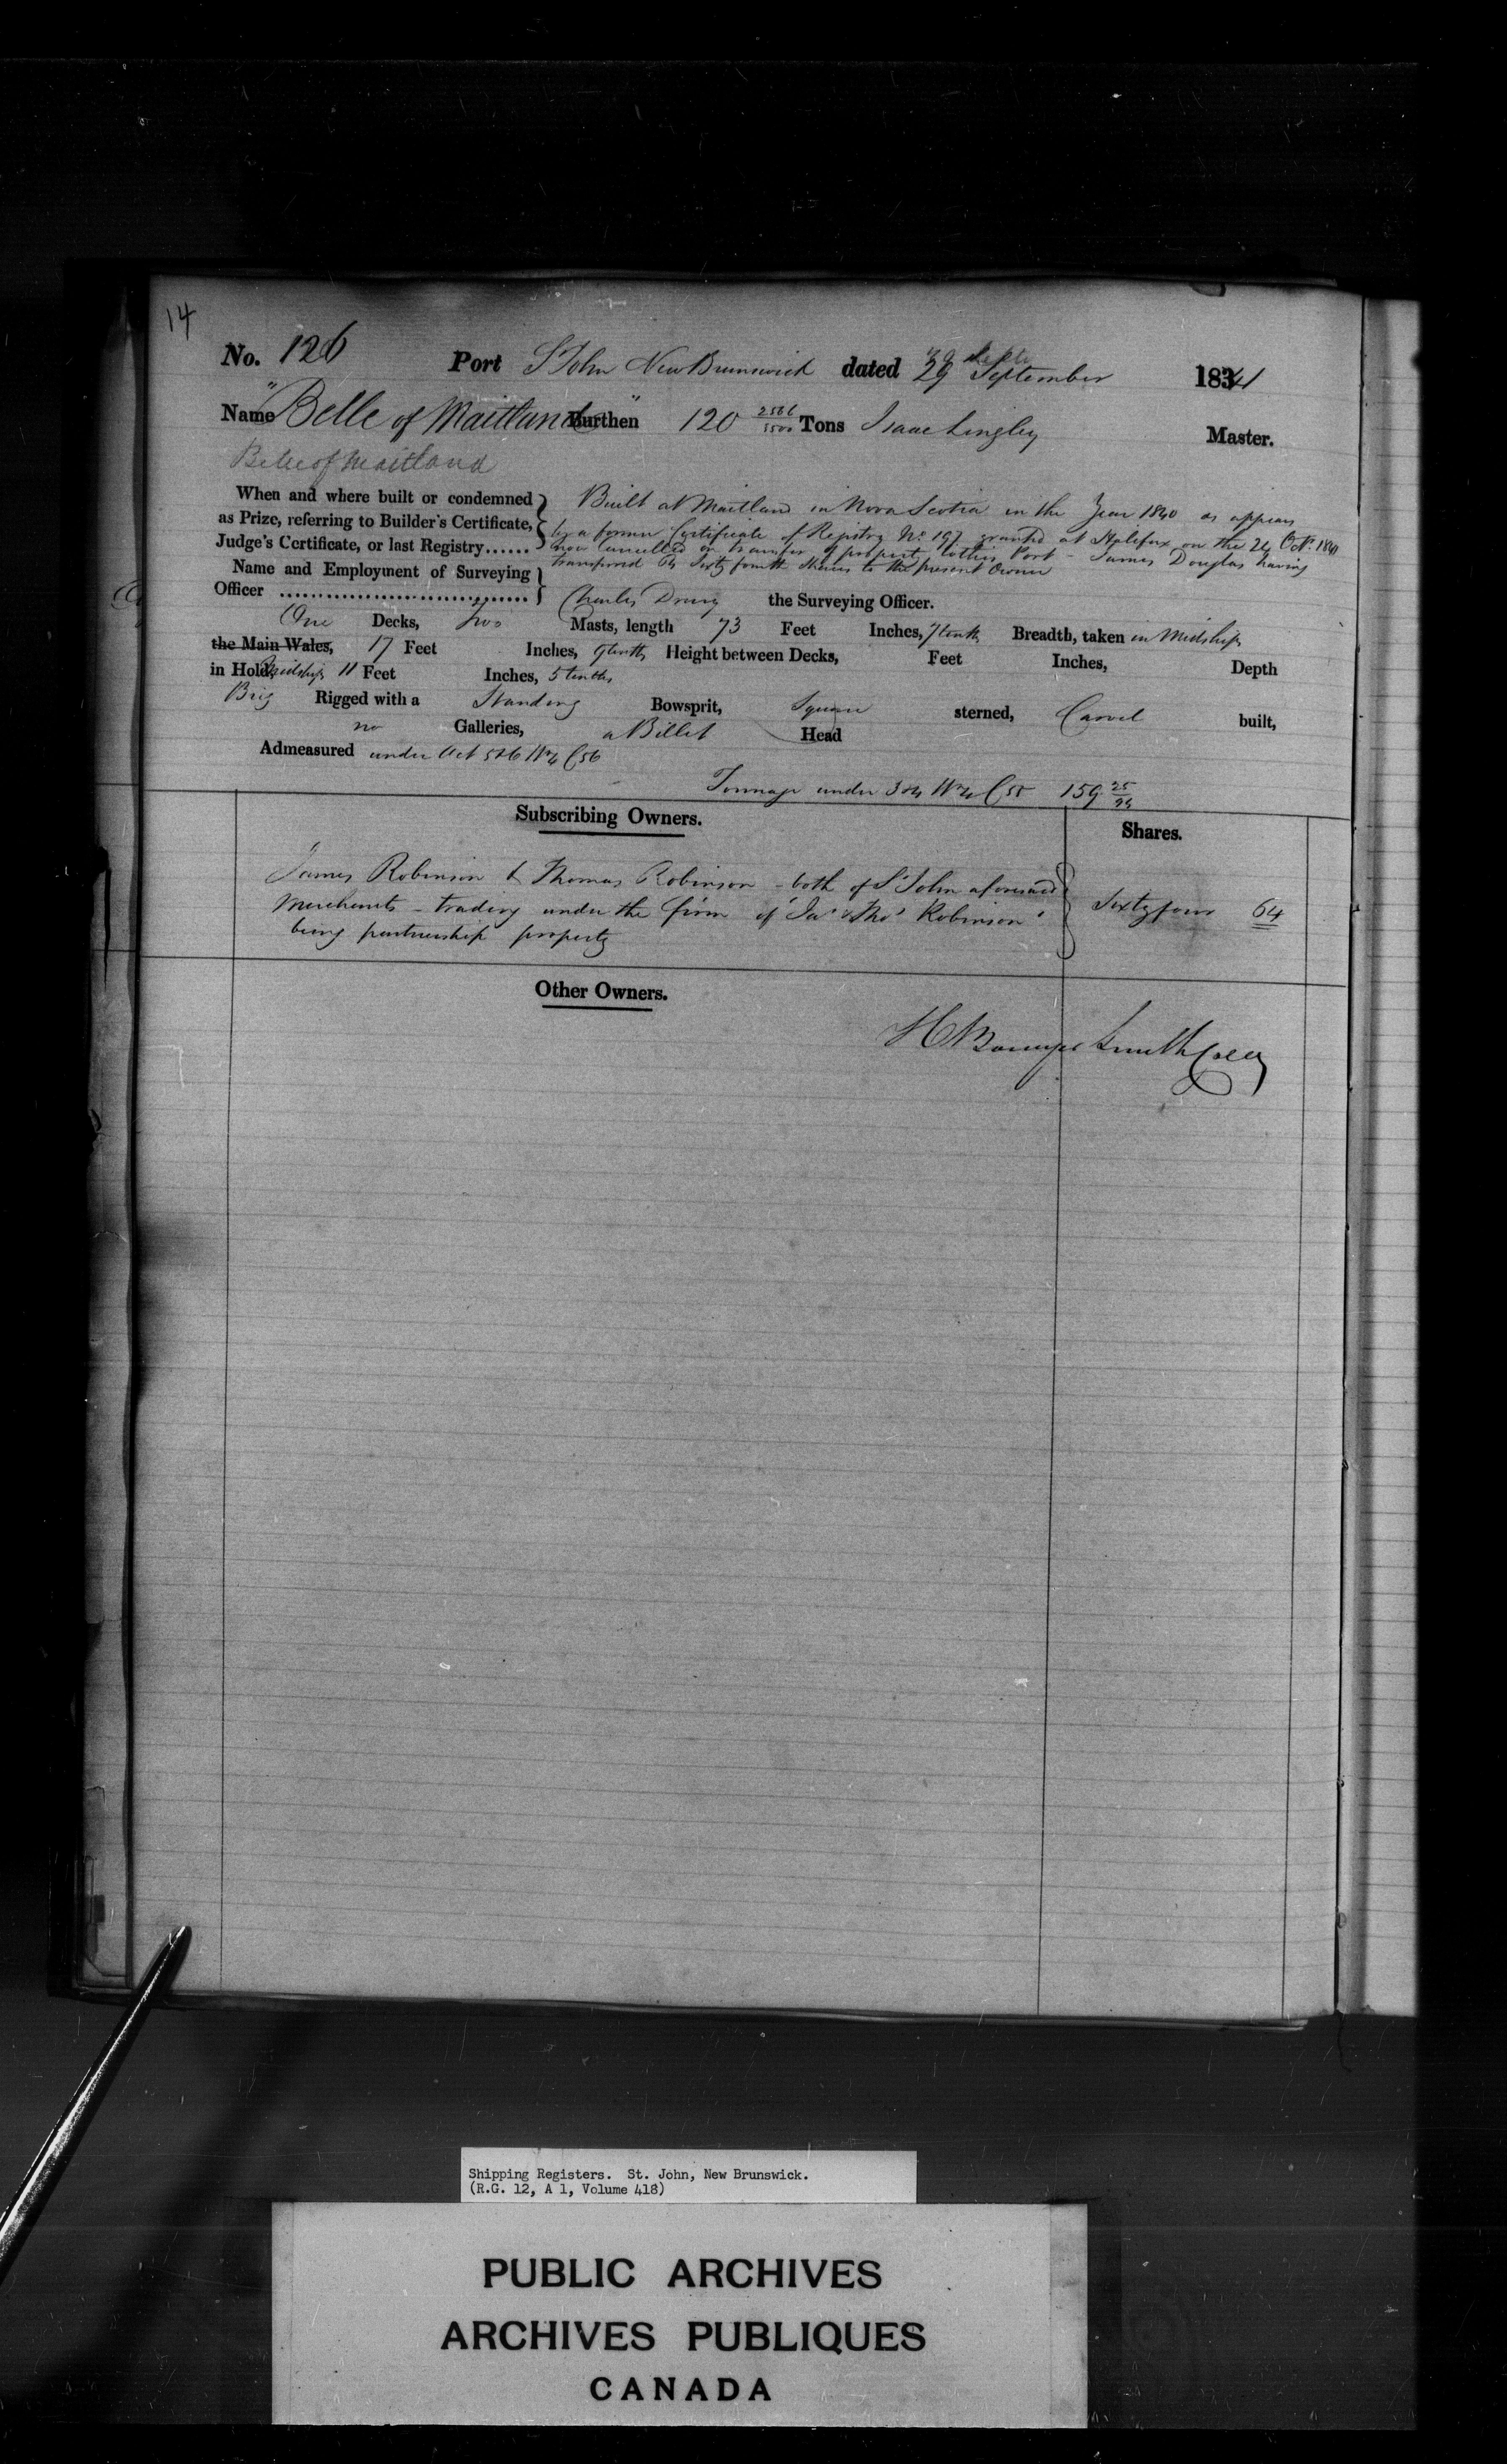 14
No. 126 Port St John New Brunswick dated 29 September 1841
Name "Belle of Maitland" Burthen 120 2566/3500 Tons Isaac Lingley Master.
Belle of Maitland
When and where built or condemned Built at Maitland in Nova Scotia in the Year 1840 as appears
as Prize, referring to Builder's Certificate, by a former Certificate of Registry No. 197 granted at Halifax on the Oct. 1840
Judge's Certificate, or last Registry...... now cancelled on transfer of property to this Port - James Douglas having
transferred 64 Sixty fourth Shares to the present Owner
Name and Employment of Surveying
Officer .............................. Charles Drury the Surveying Officer.
One Decks, Two Masts, length 73 Feet Inches, 7 tenths Breadth, taken in Midships
the Main Wales, 17 Feet Inches, 9 tenths Height between Decks, Feet Inches, Depth
in Hold Midships 11 Feet Inches, 5 tenths
Brig Rigged with a Standing Bowsprit, Square sterned, Carvel built,
no Galleries, a Billet Head
Admeasured under Act 5 & 6 Wm 4 C 56
Tonnage under 3 & 4 Wm 4 C 55 159 25/94
Subscribing Owners. Shares.
James Robinson & Thomas Robinson - both of St John aforesaid
Merchants - trading under the firm of "Jas & Thos Robinson" Sixty four 64
being partnership property
Other Owners.
H Bowyer Smith Coll
Shipping Registers. St. John, New Brunswick.
(R.G. 12, A 1, Volume 418)
PUBLIC ARCHIVES
ARCHIVES PUBLIQUES
CANADA